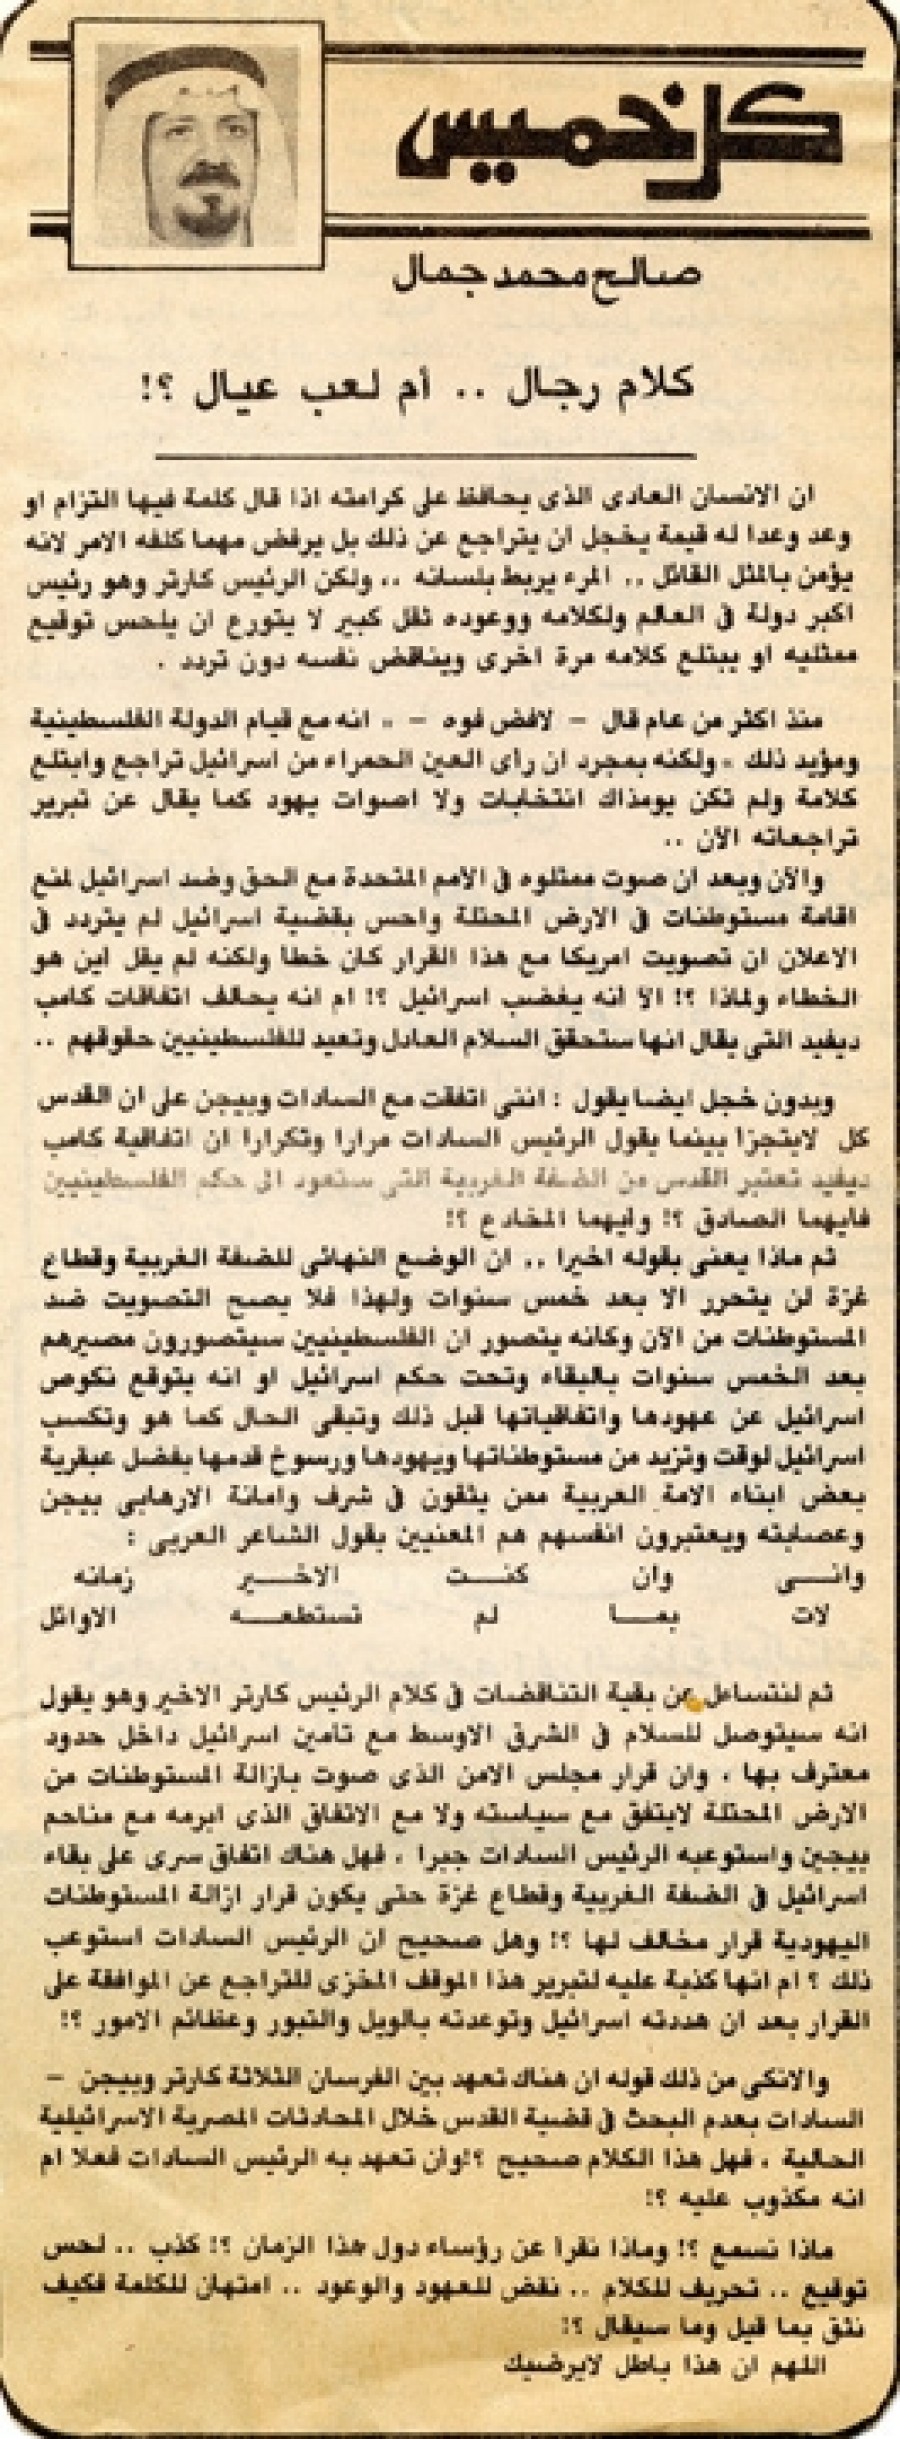 كل خميس
صالح محمد جمال
كلام رجال .. أم لعب عيال ؟!
ان الانسان العادى الذى يحافظ على كرامته اذا قال كلمة فيها التزام او
وعد وعدا له قيمة يخجل ان يتراجع عن ذلك بل يرفض مهما كلفه الامر لانه
يؤمن بالمثل القائل .. المرء يربط بلسانه .. ولكن الرئيس كارتر وهو رئيس
اكبر دولة فى العالم ولكلامه ووعوده ثقل كبير لا يتورع ان يلحس توقيع
ممثليه او يبتلع كلامه مرة اخرى ويناقض نفسه دون تردد .
منذ اكثر من عام قال – لافض فوه – .. انه مع قيام الدولة الفلسطينية
ومؤيد ذلك .. ولكنه بمجرد ان رأى العين الحمراء من اسرائيل تراجع وابتلع
كلامة ولم تكن يومذاك انتخابات ولا اصوات يهود كما يقال عن تبرير
تراجعاته الآن ..
والآن وبعد ان صوت ممثلوه فى الامم المتحدة مع الحق وضد اسرائيل لمنع
اقامة مستوطنات فى الارض المحتلة واحس بقضية اسرائيل لم يتردد فى
الاعلان ان تصويت امريكا مع هذا القرار كان خطأ ولكنه لم يقل اين هو
الخطاء ولماذا ؟! الا أنه يغضب اسرائيل ؟! ام انه يخالف اتفاقات كامب
ديفيد التى يقال انها ستحقق السلام العادل وتعيد للفلسطينيين حقوقهم ..
وبدون خجل ايضا يقول : اننى اتفقت مع السادات وبيجن على ان القدس
كل لايتجزأ بينما يقول الرئيس السادات مرارا وتكرارا ان اتفاقية كامب
ديفيد تعتبر القدس من الضفة الغربية التى ستعود الى حكم الفلسطينيين
فايهما الصادق ؟! وايهما المخادع ؟!
ثم ماذا يعنى بقوله اخيرا .. ان الوضع النهائى للضفة الغربية وقطاع
غزة لن يتحرر الا بعد خمس سنوات ولهذا فلا يصح التصويت ضد
المستوطنات من الآن وكانه يتصور ان الفلسطينيين سيتصورون مصيرهم
بعد الخمس سنوات بالبقاء وتحت حكم اسرائيل او انه يتوقع نكوص
اسرائيل عن عهودها واتفاقياتها قبل ذلك وتبقى الحال كما هو وتكسب
اسرائيل لوقت وتزيد من مستوطناتها ويهودها ورسوخ قدمها بفضل عبقرية
بعض ابناء الامة العربية ممن يثقون فى شرف وامانة الارهابى بيجن
وعصابته ويعتبرون انفسهم هم المعنيين بقول الشاعر العربى :
وانى وان كنت الاخير زمانه
لات بما لم تستطعه الاوائل
ثم لنتساعل عن بقية التناقضات فى كلام الرئيس كارتر الاخير وهو يقول
انه سيتوصل للسلام فى الشرق الاوسط مع تامين اسرائيل داخل حدود
معترف بها ، وان قرار مجلس الامن الذى صوت بازالة المستوطنات من
الارض المحتلة لايتفق مع سياسته ولا مع الاتفاق الذى ابرمه مع مناحم
بيجين واستوعبه الرئيس السادات جبرا ، فهل هناك اتفاق سرى على بقاء
اسرائيل فى الضفة الغربية وقطاع غزة حتى يكون قرار ازالة المستوطنات
اليهودية قرار مخالف لها ؟! وهل صحيح ان الرئيس السادات استوعب
ذلك ؟ ام انها كذبة عليه لتبرير هذا الموقف المخزى للتراجع عن الموافقة على
القرار بعد ان هددته اسرائيل وتوعدته بالويل والثبور وعظائم الامور ؟!
والانكى من ذلك قوله ان هناك تعهد بين الفرسان الثلاثة كارتر وبيجن –
السادات بعدم البحث فى قضية القدس خلال المحادثات المصرية الاسرائيلية
الحالية ، فهل هذا الكلام صحيح ؟! وان تعهد به الرئيس السادات فعلا ام
انه مكذوب عليه ؟!
ماذا نسمع ؟! وماذا نقرأ عن رؤساء دول هذا الزمان ؟! كذب .. لحس
توقيع .. تحريف للكلام .. نقض للعهود والوعود .. امتهان للكلمة فكيف
نثق بما قيل وما سيقال ؟!
اللهم ان هذا باطل لايرضيك